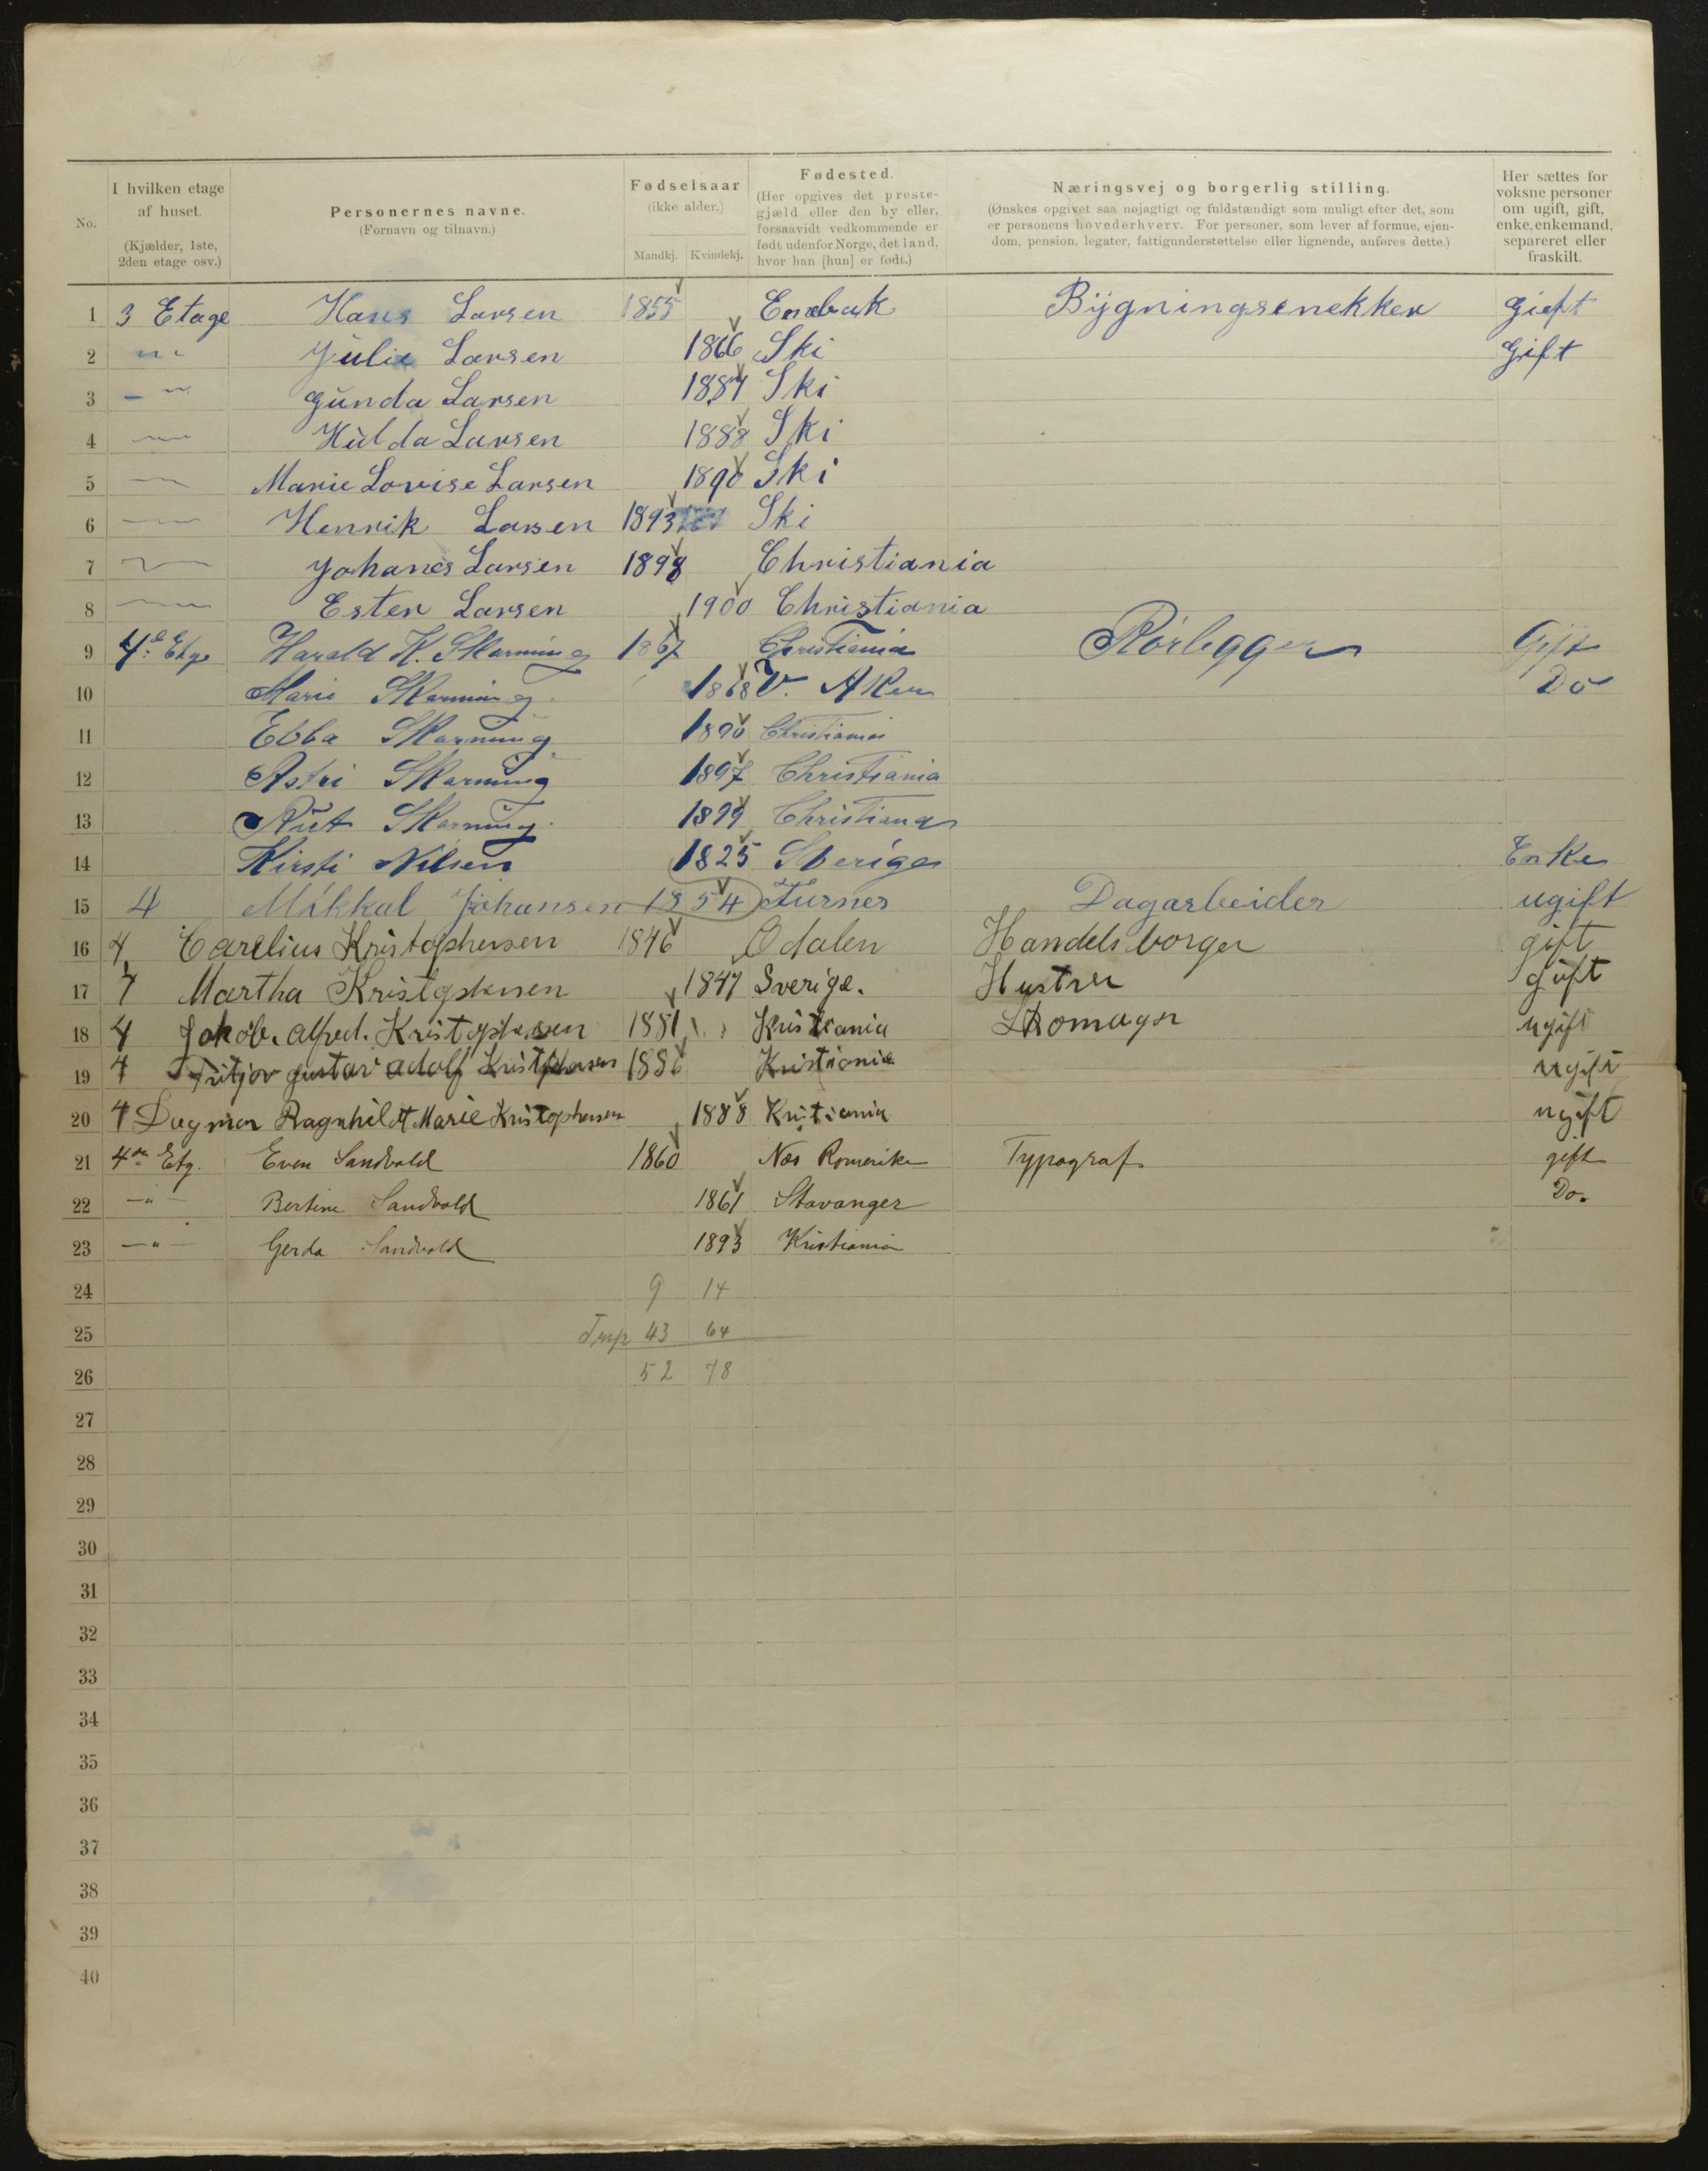 No.
I hvilken etage af huset. (Kjælder, 1ste, 2den etage osv.)
Personernes navne. (Fornavn og tilnavn.)
Fødselsaar (ikke alder.) Mandkj. Kvindekj.
Fødested. (Her opgives det prestegjæld eller den by eller, forsaavidt vedkommende er født udenfor Norge, det land, hvor han [hun] er født.)
Næringsvej og borgerlig stilling. (Ønskes opgivet saa nøjagtigt og fuldstændigt som muligt efter det, som er personens hovederhverv. For personer, som lever af formue, ejendom, pension, legater, fattigunderstøttelse eller lignende, anføres dette.)
Her sættes for voksne personer om ugift, gift, enke, enkemand, separeret eller fraskilt.
1 3 Etage Hans Larsen 1855 Enebak Bygningsenekker Gieft
2 " Julie Larsen 1866 Ski Gift
3 — " Gunda Larsen 1887 Ski
4 — Hulda Larsen 1888 Ski
5 — Marie Lovise Larsen 1890 Ski
6 — Henrik Larsen 1893 Ski
7 — Johanes Larsen 1898 Christiania
8 — Ester Larsen 1900 Christiania
9 4de Etge Harald H. Skarning 1867 Christiania Rörlegger Gift
10 Marie Skarning 1868 V. Aker Do
11 Ebba Skarning 1890 Christiania
12 Astri Skarning 1897 Christiania
13 Rut Skarning 1899 Christiania
14 Kirsti Nilsen 1825 Sverige Enke
15 4 Mikkal Johansen 1854 Furnes Dagarbeider ugift
16 4 Carelius Kristophersen 1846 Odalen Handelsborger gift
17 4 Martha Kristophersen 1847 Sverige. Hustru gift
18 4 Jakob. Alfred. Kristophersen 1881 Kristiania Skomager ugift
19 4 Fritjov Gustav Adolf Kristophersen 1886 Kristiania ugift
20 4 Dagmar Ragnhildt Marie Kristophersen 1888 Kristiania ugift
21 4de Etg. Even Sandvold 1860 Nes Romerike Typograf gift
22 — " — Bertine Sandvold 1861 Stavanger Do.
23 — " — Gerda Sandvold 1893 Kristiania
24 9 14
25 Trsp 43 64
26 52 78
27
28
29
30
31
32
33
34
35
36
37
38
39
40